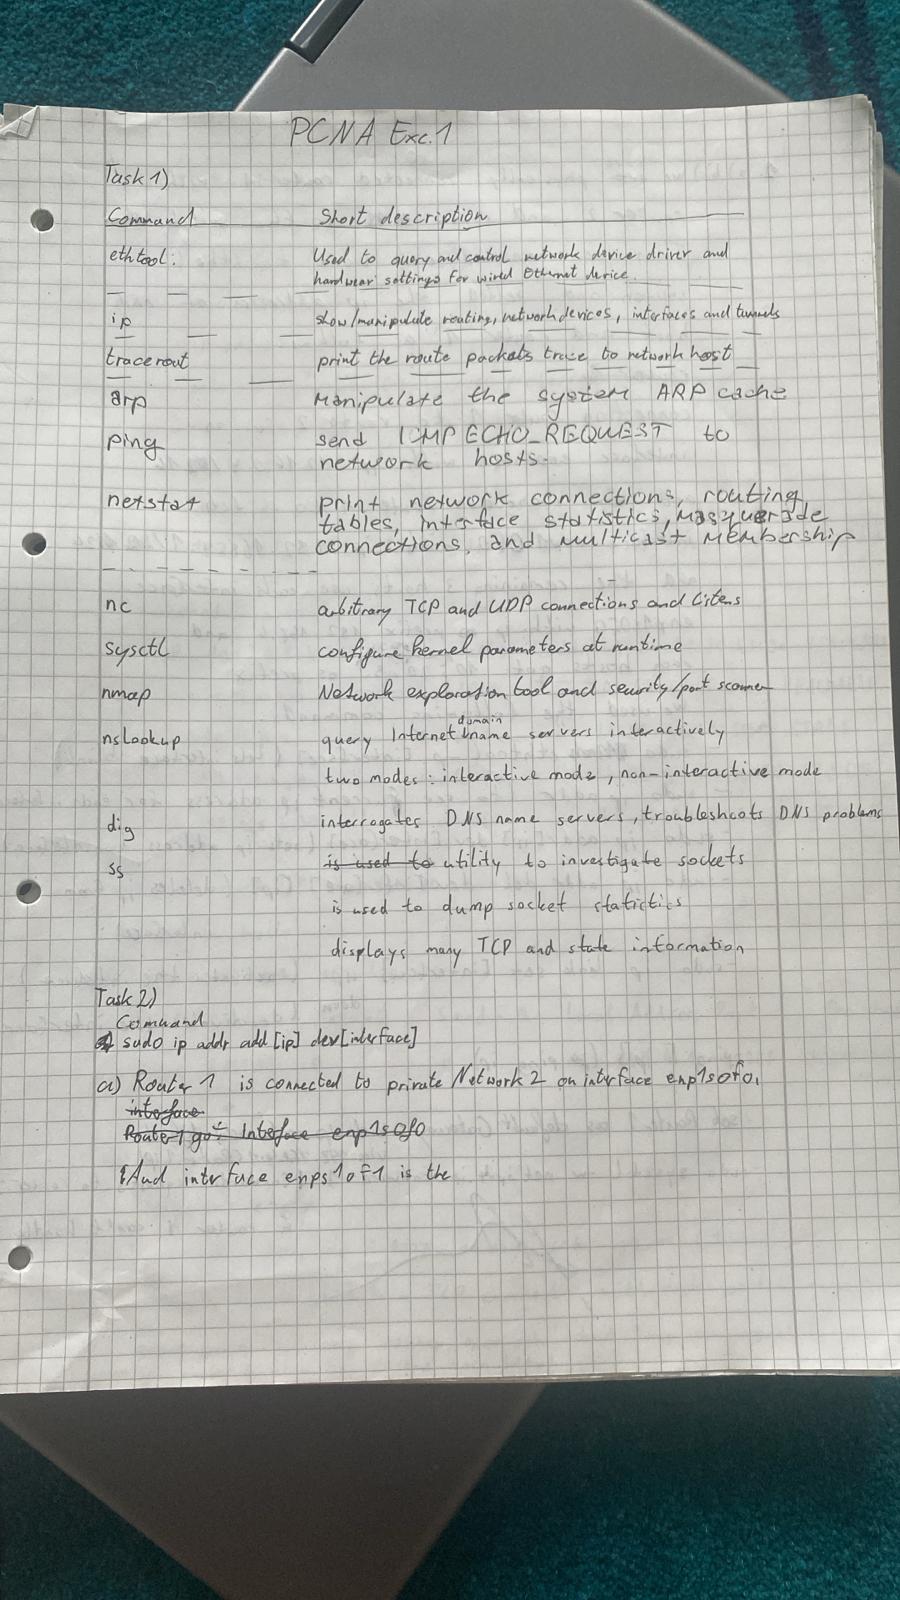 PCNA Exc. 1
Task 1)
Command Short description
ethtool: Used to query and control network device driver and
hardwear settings for wired Ethernet device.
ip show/manipulate routing, network devices, interfaces and tunnels
tracerout print the route packets trace to network host
arp manipulate the system ARP cache
ping send ICMP ECHO_REQUEST to
network hosts.
netstat print network connections, routing
tables, interface statistics, masquerade
connections, and multicast membership
nc arbitrary TCP and UDP connections and listens
sysctl configure kernel parameters at runtime
nmap Network exploration tool and security/port scanner
nslookup query Internet domain name servers interactively
two modes: interactive mode, non-interactive mode
dig interrogates DNS name servers, troubleshoots DNS problems
ss is used to utility to investigate sockets
is used to dump socket statictics
displays many TCP and state information
Task 2)
Command
sudo ip addr add [ip] dev [interface]
a) Router 1 is connected to private Network 2 on interface enp1s0f0.
interface
Router 1 got Interface enp1s0f0
And intrface enps1of1 is the